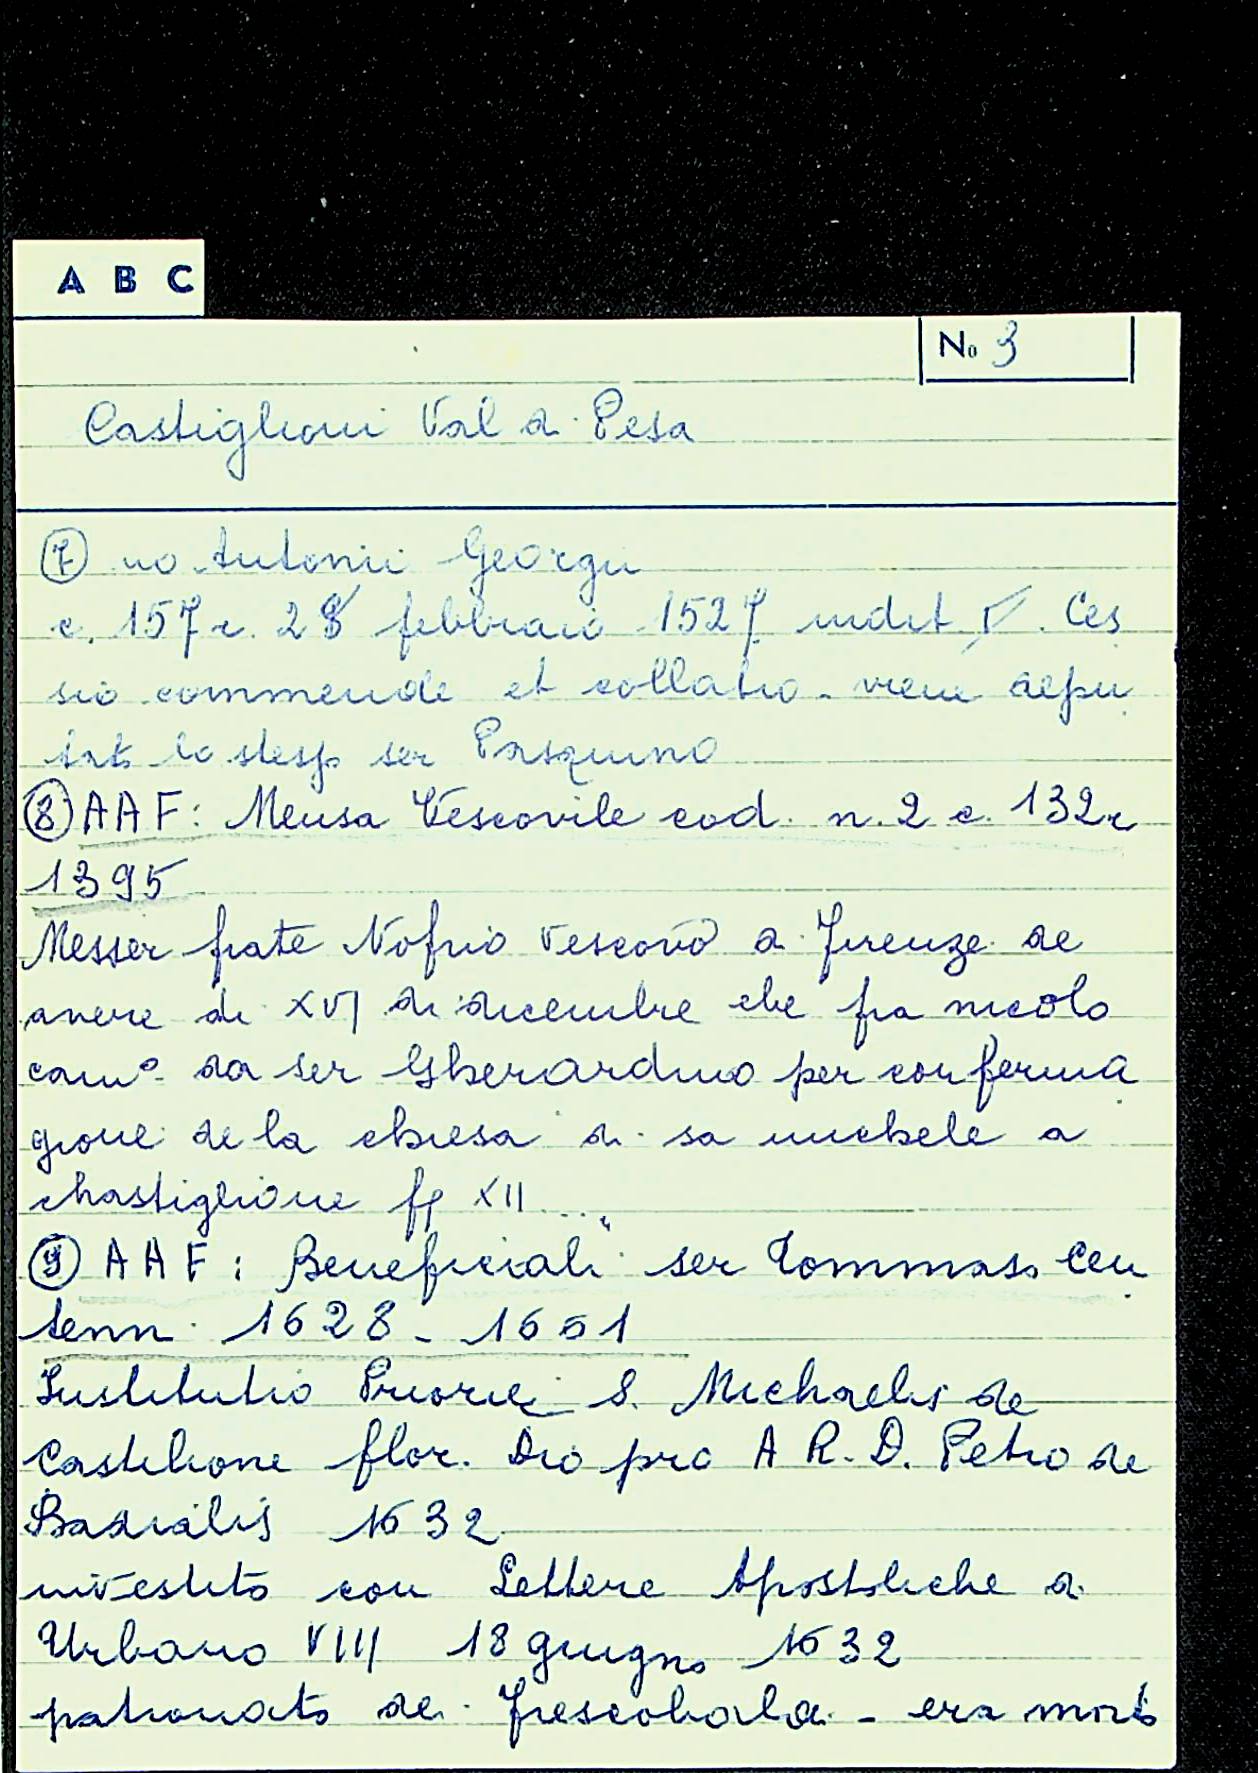 A B C
No 3
Castiglioni Val di Pesa
7 no Antonii Georgii
c. 157 r. 28 febbraio 1527 indit V. Ces
sio commende et collatio - viene depu
tato lo stesso ser Pasquino
8 AAF: Mensa Vescovile cod. n. 2 c. 132r
1395
Messer frate Nofrio vescovo di Firenze de
avere di XVI di dicembre ebe fra nicolo
cam° da ser Gherardino per conferma
gione de la chiesa di sa michele a
chastiglione ff XII ...."
9 AAF: Beneficiali ser Tommaso Cen
tenn. 1628 - 1651
Institutio Priorie S. Michaelis de
Castilione flor. Dio pro A R. D. Petro de
1632
investito con Lettere Apostoliche di
Urbano VIII 18 giugno 1632
patronato dei Frescobaldi - era morto